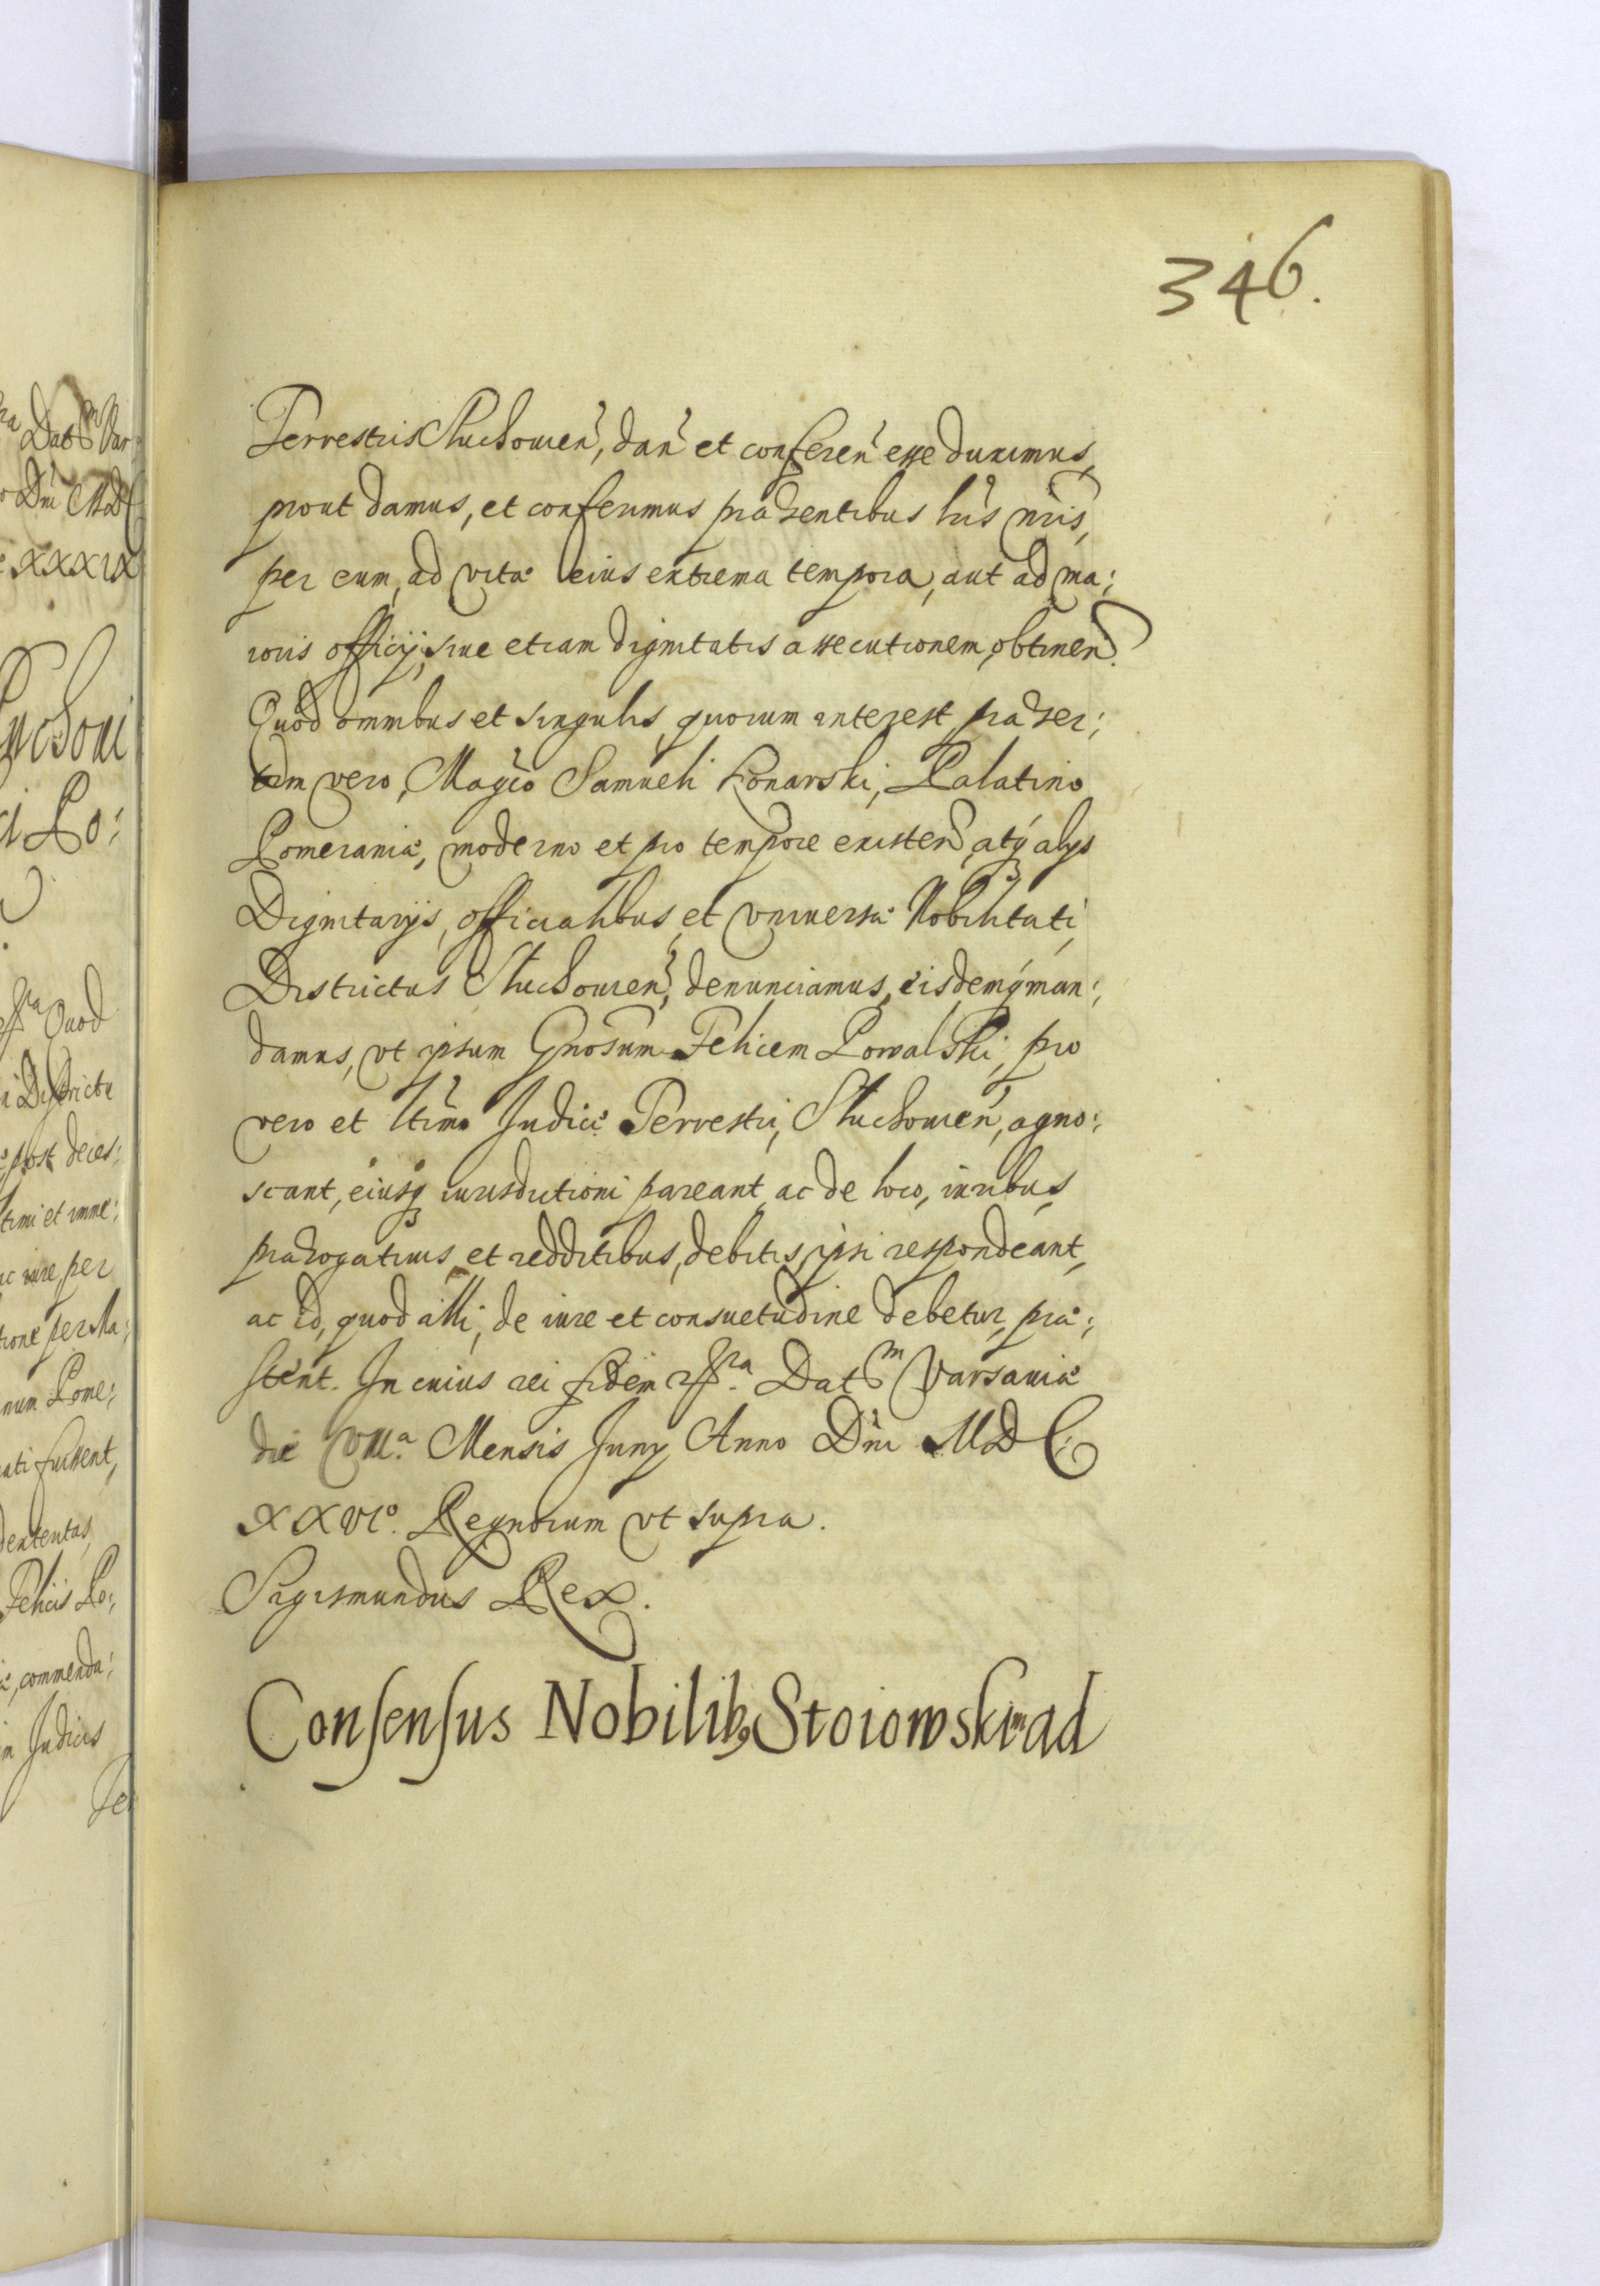 346.
Terrestris Sluchouien, dan et conferen esse duximus,
prout damus, et conferimus præsentibus lris nris,
per eum, ad vitæ eius extrema tempora, aut ad ma:
ioris officij, siue etiam dignitatis assecutionem, obtinen.
Quod omnibus et singulis, quorum interest præser:
tim vero, Magco Samueli Konarski, Palatino
Pomeraniæ, moderno et pro tempore existen, atq alijs
Dignitarijs, officialibus, et vniuersæ Nobilitati,
Districtus Sluchouien, denunciamus, eisdemq man:
damus, vt ipsum Gnosum Felicem Powalski, pro
vero et ltimo Judice Terrestri, Sluchouien, agno:
scant, eiusq iurisdictioni pareant, ac de loco, iuribus,
prærogatiuis, et redditibus, debitis, ipsi respondeant,
ac id, quod illi, de iure et consuetudine debetur, præ:
stent. In cuius rei fidem Dat Varsauiæ
die VIIIa Mensis Juny, Anno Dni MDC.
XXVIo. Regnorum vt supra.
Sigismundus Rex.
Consensus Nobilib9 Stoiowskim ad
Quod
Districtu
post deces:
timi et imme:
ac iure per
tione per Ma:
num Pome:
cati fuissent,
Felicis Po:
commenda:
Judicis
Ter